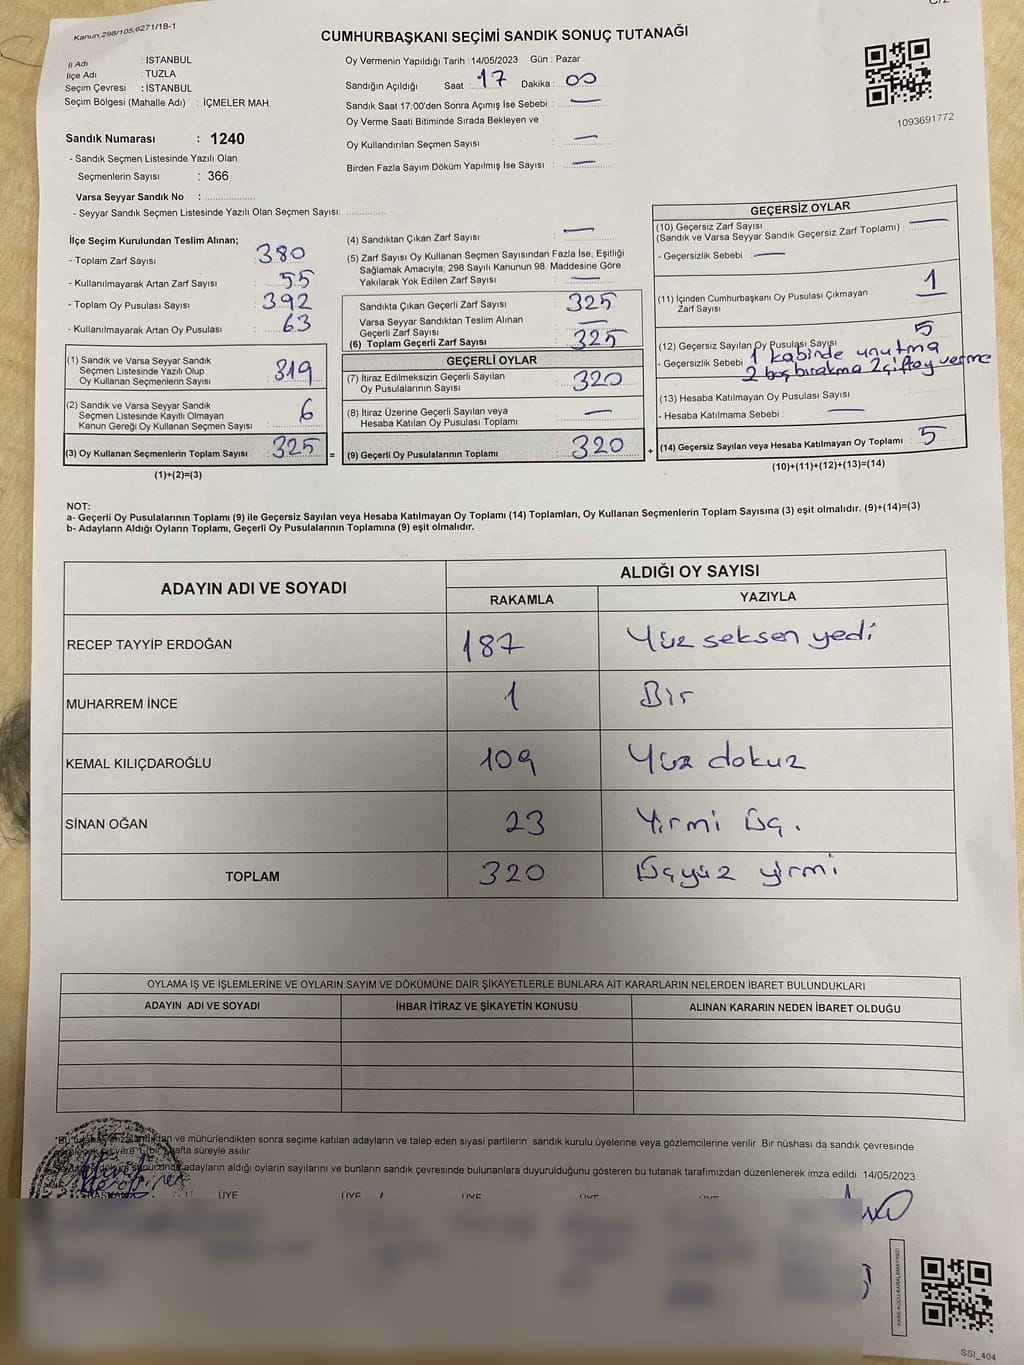 C/2
Kanun:298/105,6271/18-1
CUMHURBAŞKANI SEÇİMİ SANDIK SONUÇ TUTANAĞI
İl Adı : İSTANBUL
İlçe Adı : TUZLA
Seçim Çevresi : İSTANBUL
Seçim Bölgesi (Mahalle Adı) : İÇMELER MAH.
Sandık Numarası : 1240
- Sandık Seçmen Listesinde Yazılı Olan
Seçmenlerin Sayısı : 366
Varsa Seyyar Sandık No :
- Seyyar Sandık Seçmen Listesinde Yazılı Olan Seçmen Sayısı:
Oy Vermenin Yapıldığı Tarih :14/05/2023 Gün : Pazar
Sandığın Açıldığı Saat : 17 Dakika : 00
Sandık Saat 17:00'den Sonra Açımış İse Sebebi : —
Oy Verme Saati Bitiminde Sırada Bekleyen ve
Oy Kullandırılan Seçmen Sayısı : —
Birden Fazla Sayım Döküm Yapılmış İse Sayısı : —
1093691772
İlçe Seçim Kurulundan Teslim Alınan;
- Toplam Zarf Sayısı : 380
- Kullanılmayarak Artan Zarf Sayısı : 55
- Toplam Oy Pusulası Sayısı : 392
- Kullanılmayarak Artan Oy Pusulası : 63
(1) Sandık ve Varsa Seyyar Sandık
Seçmen Listesinde Yazılı Olup
Oy Kullanan Seçmenlerin Sayısı : 319
(2) Sandık ve Varsa Seyyar Sandık
Seçmen Listesinde Kayıtlı Olmayan
Kanun Gereği Oy Kullanan Seçmen Sayısı : 6
(3) Oy Kullanan Seçmenlerin Toplam Sayısı : 325 =
(1)+(2)=(3)
(4) Sandıktan Çıkan Zarf Sayısı : —
(5) Zarf Sayısı Oy Kullanan Seçmen Sayısından Fazla İse, Eşitliği
Sağlamak Amacıyla; 298 Sayılı Kanunun 98. Maddesine Göre
Yakılarak Yok Edilen Zarf Sayısı : —
Sandıkta Çıkan Geçerli Zarf Sayısı : 325
Varsa Seyyar Sandıktan Teslim Alınan
Geçerli Zarf Sayısı : —
(6) Toplam Geçerli Zarf Sayısı : 325
GEÇERLİ OYLAR
(7) İtiraz Edilmeksizin Geçerli Sayılan
Oy Pusulalarının Sayısı : 320
(8) İtiraz Üzerine Geçerli Sayılan veya
Hesaba Katılan Oy Pusulası Toplamı : —
(9) Geçerli Oy Pusulalarının Toplamı : 320 +
GEÇERSİZ OYLAR
(10) Geçersiz Zarf Sayısı
(Sandık ve Varsa Seyyar Sandık Geçersiz Zarf Toplamı) : —
- Geçersizlik Sebebi : —
(11) İçinden Cumhurbaşkanı Oy Pusulası Çıkmayan
Zarf Sayısı : 1
(12) Geçersiz Sayılan Oy Pusulası Sayısı : 5
- Geçersizlik Sebebi : 1 kabinde unutma
2 boş bırakma 2 çift oy verme
(13) Hesaba Katılmayan Oy Pusulası Sayısı :
- Hesaba Katılmama Sebebi : —
(14) Geçersiz Sayılan veya Hesaba Katılmayan Oy Toplamı : 5
(10)+(11)+(12)+(13)=(14)
NOT:
a- Geçerli Oy Pusulalarının Toplamı (9) ile Geçersiz Sayılan veya Hesaba Katılmayan Oy Toplamı (14) Toplamları, Oy Kullanan Seçmenlerin Toplam Sayısına (3) eşit olmalıdır. (9)+(14)=(3)
b- Adayların Aldığı Oyların Toplamı, Geçerli Oy Pusulalarının Toplamına (9) eşit olmalıdır.
ADAYIN ADI VE SOYADI ALDIĞI OY SAYISI
RAKAMLA YAZIYLA
RECEP TAYYİP ERDOĞAN 187 Yüz seksen yedi
MUHARREM İNCE 1 Bir
KEMAL KILIÇDAROĞLU 109 Yüz dokuz
SİNAN OĞAN 23 Yirmi üç.
TOPLAM 320 Üçyüz yirmi
OYLAMA İŞ VE İŞLEMLERİNE VE OYLARIN SAYIM VE DÖKÜMÜNE DAİR ŞİKAYETLERLE BUNLARA AİT KARARLARIN NELERDEN İBARET BULUNDUKLARI
ADAYIN ADI VE SOYADI İHBAR İTİRAZ VE ŞİKAYETİN KONUSU ALINAN KARARIN NEDEN İBARET OLDUĞU
ve mühürlendikten sonra seçime katılan adayların ve talep eden siyasi partilerin sandık kurulu üyelerine veya gözlemcilerine verilir Bir nüshası da sandık çevresinde
hafta süreyle asılır.
adayların aldığı oyların sayılarını ve bunların sandık çevresinde bulunanlara duyurulduğunu gösteren bu tutanak tarafımızdan düzenlenerek imza edildi 14/05/2023
BAŞKAN ÜYE ÜYE ÜYE ÜYE ÜYE
KARE KODU KARALAMAYINIZ!
SSI_404